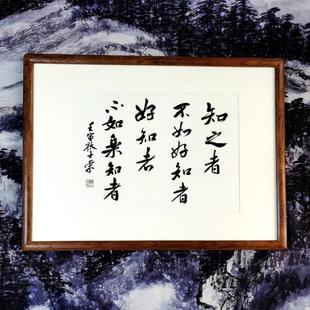 知之者
不如好知者
好知者
不如樂知者
壬寅